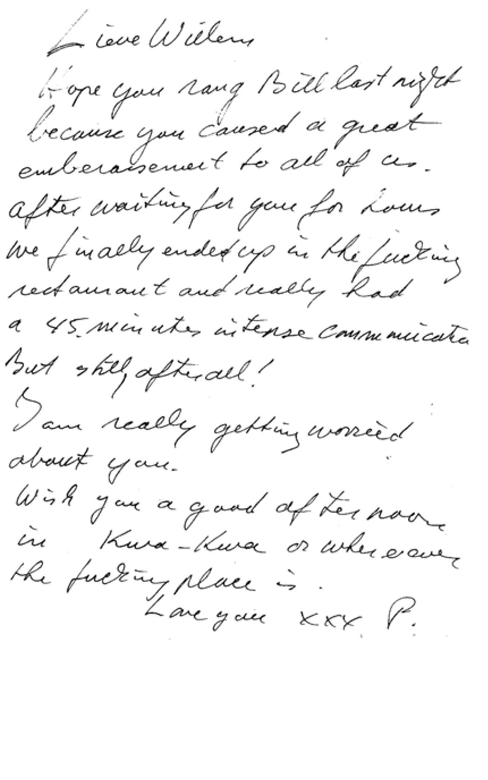 Lieve Willem
Hope you rang Bill last night
because you caused a great
emberaisement to all of us.
After waiting for you for hours
we finally ended up in the fucking
restaurant and really had
a 45. minutes intense communicatio
But still, after all!
I am really getting worried
about you.
Wish you a good afternoon
in Kwa-Kwa or wherever
the fucking place is.
Love you xxx. P.